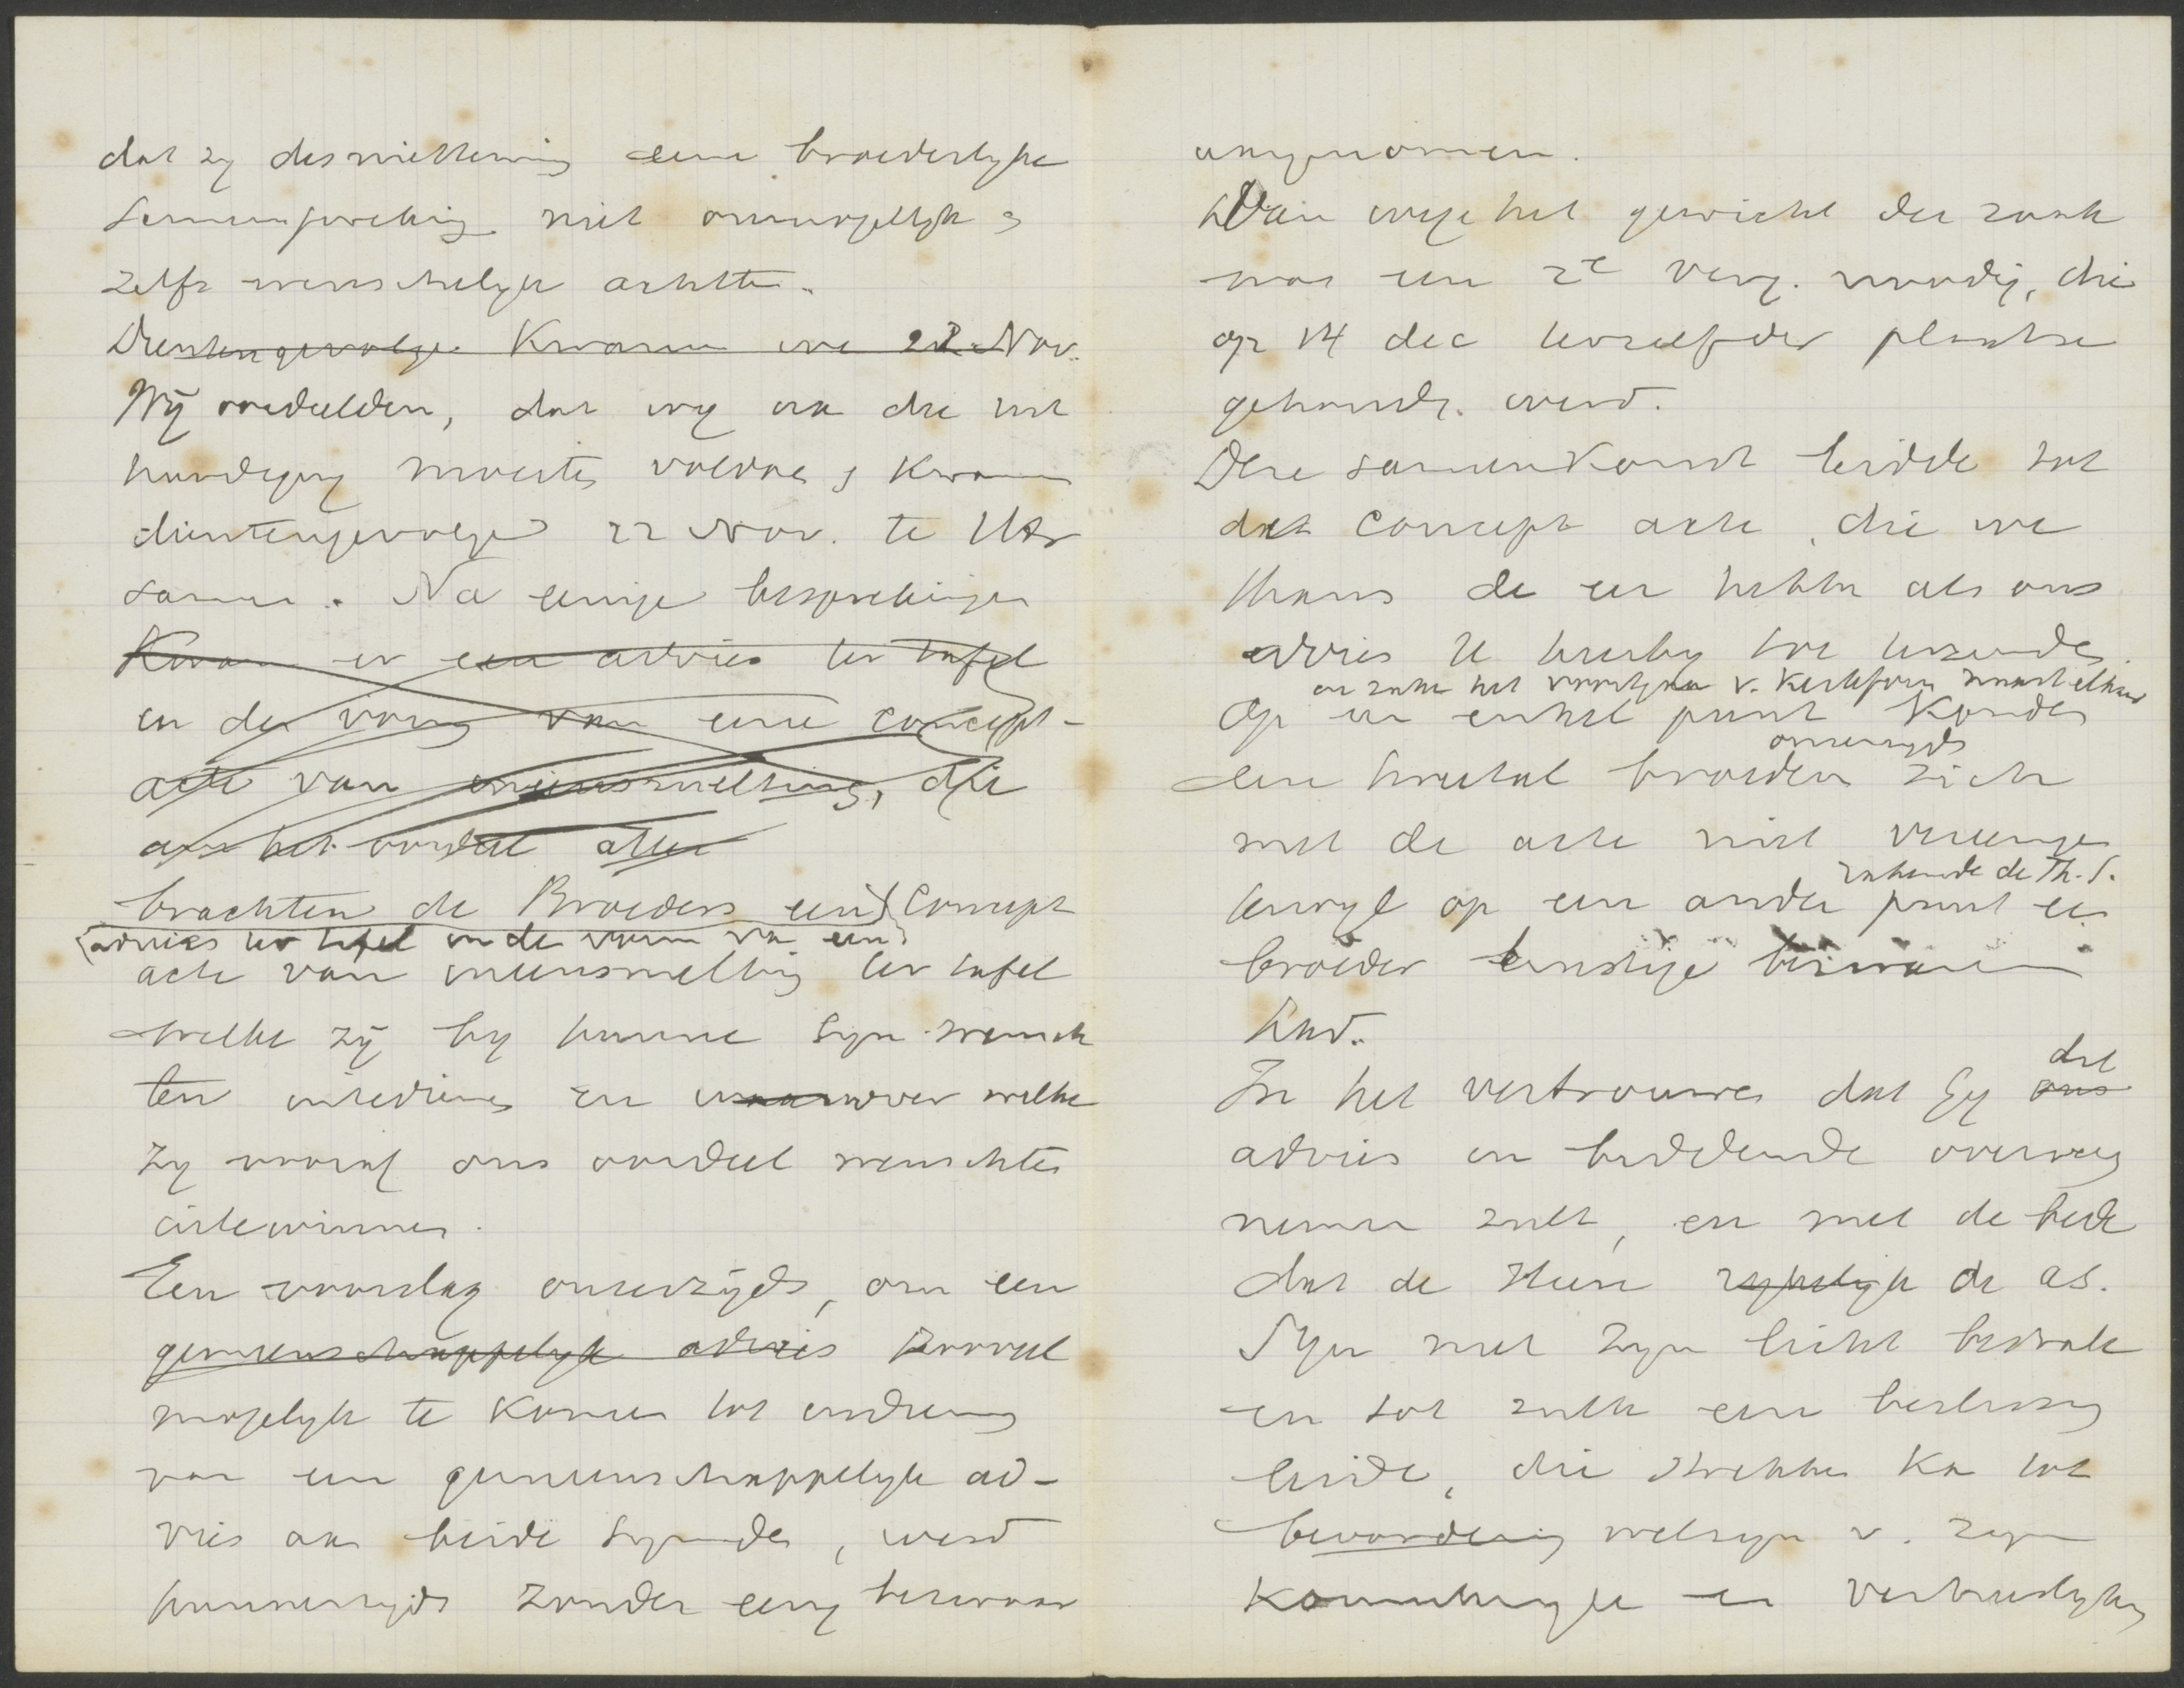 dat zy desniettemin eene broederlyke
samenspreking niet onmogelyk &
zelfs wenschelyk achtte.
Dientengevolge kwamen we 22 Nov.
Wij oordeelden, dat wy aan die uit
noodiging moesten voldoen & kwamen
dientengevolge 22 Nov. te Utr
samen. Na eenige besprekingen
Kwam er een advies ter tafel
in den vorm van eene concept-
acte van ineensmelting, die
aan het oordeel aller
brachten de Broeders een Concept
advies ter tafel in de vorm van een
acte van ineensmelting ter tafel
welke zij by hunne Syn wensch
ten intedienen en waarover welke
zy vooraf ons oordeel wenschten
intewinnen.
Een voorslag onzerzijds, om een
gemeenschappelyk advies zooveel
mogelyk te komen tot indiening
van een gemeenschappelyk ad-
vies aan beide Synoden, werd
hunnerzyds zonder eenig bezwaar
aangenomen.
Wegens het gewicht der zaak
was een 2e verg. noodig, die
op 14 dec terzelfder plaatse
gehouden werd.
Deze samenkomst leidde tot
dat concept acte, die we
thans de eer hebben als ons
advies U hierby toe te zenden.
in zake het voortgaan v. kerkform naast elkaar
Op een enkel punt konden
onzerzyds
een tweetal broeders zich
met de acte niet vereenigen
rakende de Th. S.
terwyl op een ander punt een
broeder ernstige bezwaren
had.
dit
In het vertrouwen dat Gy ons
advies in biddende overweg
nemen zult, en met de bede
dat de Heere rykelyk de as.
Syn met Zyn licht bestrale
en tot zulk een beslissing
leide, die strekken kan tot
bevordering welzyn v. zyn
Koninkryk en verheerlyking